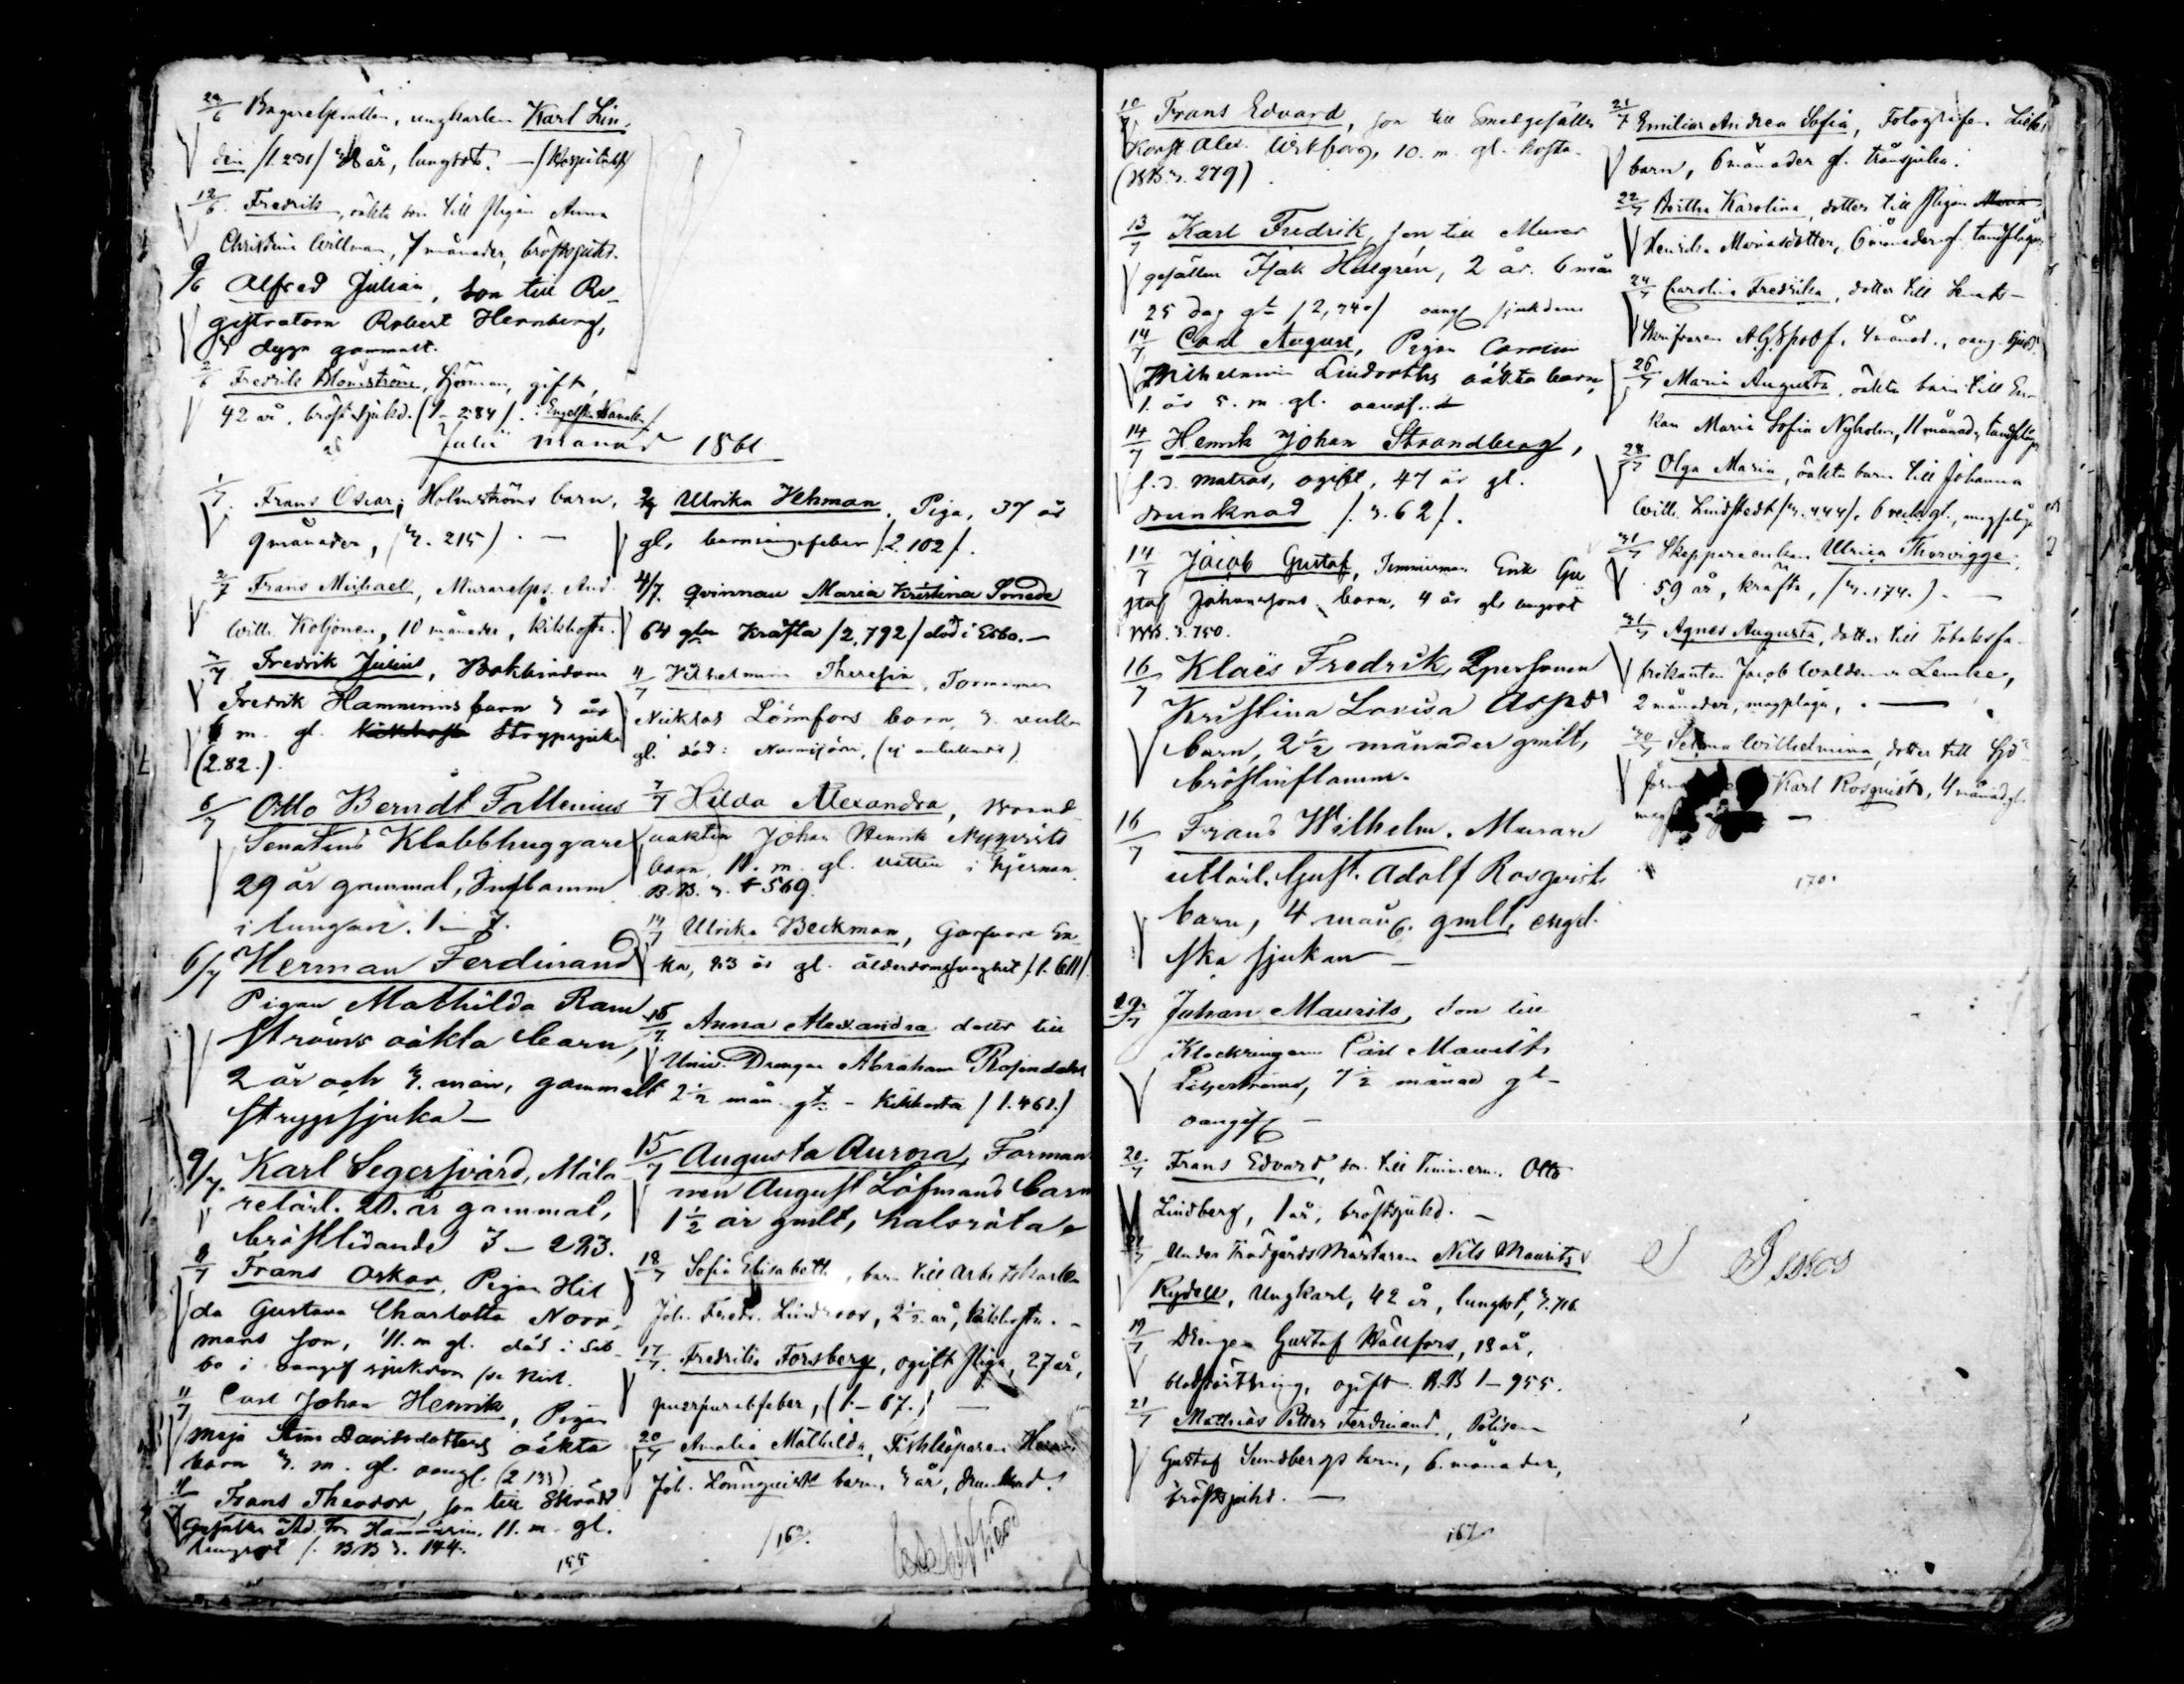 29/6 Bagaregesällen, ungkarlen Karl Lin-
din /1.231/ år, lungsot. — /Hospitalet/
12/6. Fredrik, oäkta son till Pigan Anna
Christina Willman, 7 månader, bröstsjukd.
9/6 Alfred Julian, Son till Re-
gistratorn Robert Hernberg,
3 dygn gammalt.
2/6 Fredrik Blomström, Sjöman, gift,
42 år, bröstsjukd. (1-284). Engelska Kanalen/
Julii månad 1861
1/7. Frans Oscar, Holmströms barn,
9 månader, (3. 215). —
2/7 Frans Michael, Muraregs. And.
Wilh. Koljonen, 10 månader, kikhosta.
3/7 Fredrik Julius, Bokbindare
Fredrik Hammerins barn 3 år
6 m. gl. Strypsjuka
(2.82.)
6/7 Otto Berndt Fallenius
Senatens Klabbhuggare
29 år gammal, Inflamm.
i lungan. 1-7.
6/7 Herman Ferdinand
Pigan Mathilda Ram
ströms oäkta barn,
2 år och 3. mån, gammalt
strypsjuka —
9/7. Karl Segersvärd, Måla
relärl. 20. år gammal,
bröstlidande 3 - 223.
8/7 Frans Oskar, Pigan Hil
da Gustava Charlotta Norr-
mans son, 11. m gl. död i Sib-
bo i oangif sjukdom
11/7 Carl Johan Henrik, Pigan
Maja Stina Davidsdotters oäkta
barn 3. m. gl. oangf. (2 133)
11/7 Frans Theodor, son till Skrädd
Gesällen Hammarin. 11. m. gl.
Lungsot /. BB 3. 144.
155
2/7 Ulrika Uhman, Piga, 37 år
gl, barnsängsfeber /2.102/.
4/7. Qvinnan Maria Kristina Sonede
64 glm Kräfta /2,792/ död i Esbo. —
4/7 Vilhelmina Theresia, Formannen
Niklas Lönnfors barn, 3. veckor
gl. död: Nurmijärvi,
7/7 Hilda Alexandra, Brand
vakten Johan Henrik Nyqvists
barn, 11. m. gl. vatten i hjernan.
B.B. 3. 569.
14/7 Ulrika Beckman, Garfvare En
ka, 73 år gl. ålderdomssvaghet /1. 611/
16/7. Anna Alexandra dotter till
Univ. Drängen Abraham Rosendahl
2 1/2 mån. gt. - Kikhosta /1.461.)
15/7 Augusta Aurora, Forman
nen August Löfmans barn
1 1/2 år gmlt, halsröta
18/7 Sofia Elisabeth, barn till Arbetskarlen
Joh. Fredr. Lindroos, 2 1/2 år, kikhosta. -
17/7. Fredrika Forsberg, ogift Piga, 27 år,
puerpuralfeber, (1.-67.) —
20/7 Amalia Mathilda, Fiskköparen Henrik
Joh. Lönnqvists barn, 3 år, drunknad.
162.
10/7. Frans Edvard, son till Smedgesällen
Konst. Alex. Wikberg, 10. m. gl. hosta.
(BB 3. 279)
13/7 Karl Fredrik, son till Murar
gesällen Isak Holgrén, 2 år. 6 mån
25 dag gt /2,740/ oangf sjukdom
14/7 Carl August, Pigan Carolina
Wilhelmina Lindroths oäkta barn,
1. år 5. m. gl. oangf.
14/7 Henrik Johan Strandberg,
f.d. matros, ogift, 47 år gl.
drunknad /.3.62/.
14/7 Jacob Gustaf, Timmerman Erik Gu
staf Johanssons barn, 4 år gl. lungsot
BB. 3. 750.
16/7 Klaës Fredrik, Qpersonen
Kristina Lovisa Aspos
barn, 2 1/2 månader gmlt,
bröstinflamm.
16/7 Frans Wilhelm. Murare
utlärl. Gust. Adolf Rosqvists
barn, 4 mån. gmlt, engel-
ska sjukan —
19/7 Johan Maurits, son till
Klockringaren Carl Maurits
7 1/2 månad gl-
oangif —
20/7 Frans Edvard, son till Timmerm. Otto
Lindberg, 1 år, bröstsjukd. —
21/7 Under Trädgårdsmästaren Nils Maurits
Rydell, Ungkarl, 42 år, lungsot, 3.716.
19/7 Drängen Gustaf Wällfors, 18 år,
blodstörtning, ogift. B.B 1-955.
21/7 Matthias Petter Ferdinand, Polisen
Gustaf Sundbergs barn, 6. månader,
bröstsjukd. —
167
21/7 Emilia Andrea Sofia, Fotografen
barn, 6 månader gl. trånsjuka.
22/7 Bertha Karolina, dotter till Pigan
Henrika Mariasdotter, 6 månader gl. tandplågor
24/7 Carolina Fredrika, dotter till Senats-
skrifvaren A. G. Spoof, 4 månad., oang. sjukd.
26/7 Maria Augusta, oäkta barn till En-
kan Maria Sofia Nyholm, 11 månad, tandplågor
28/7 Olga Maria, oäkta barn till Johanna
Wilh. Lindstedt /3.444/. 6 veckor gl., magplåga
31/7 Skepparenkan Ulrica Thorvigge,
59 år, kräfta, (3.174.) —
31/7 Agnes Augusta, dotter till Tobaksfa-
brikanten Jacob Waldemar Lemke,
2 månader, magplåga, . —
30/7 Selma Wilhelmina, dotter till Sjö-
Karl Rosqvist, 4 månad gl.
170.